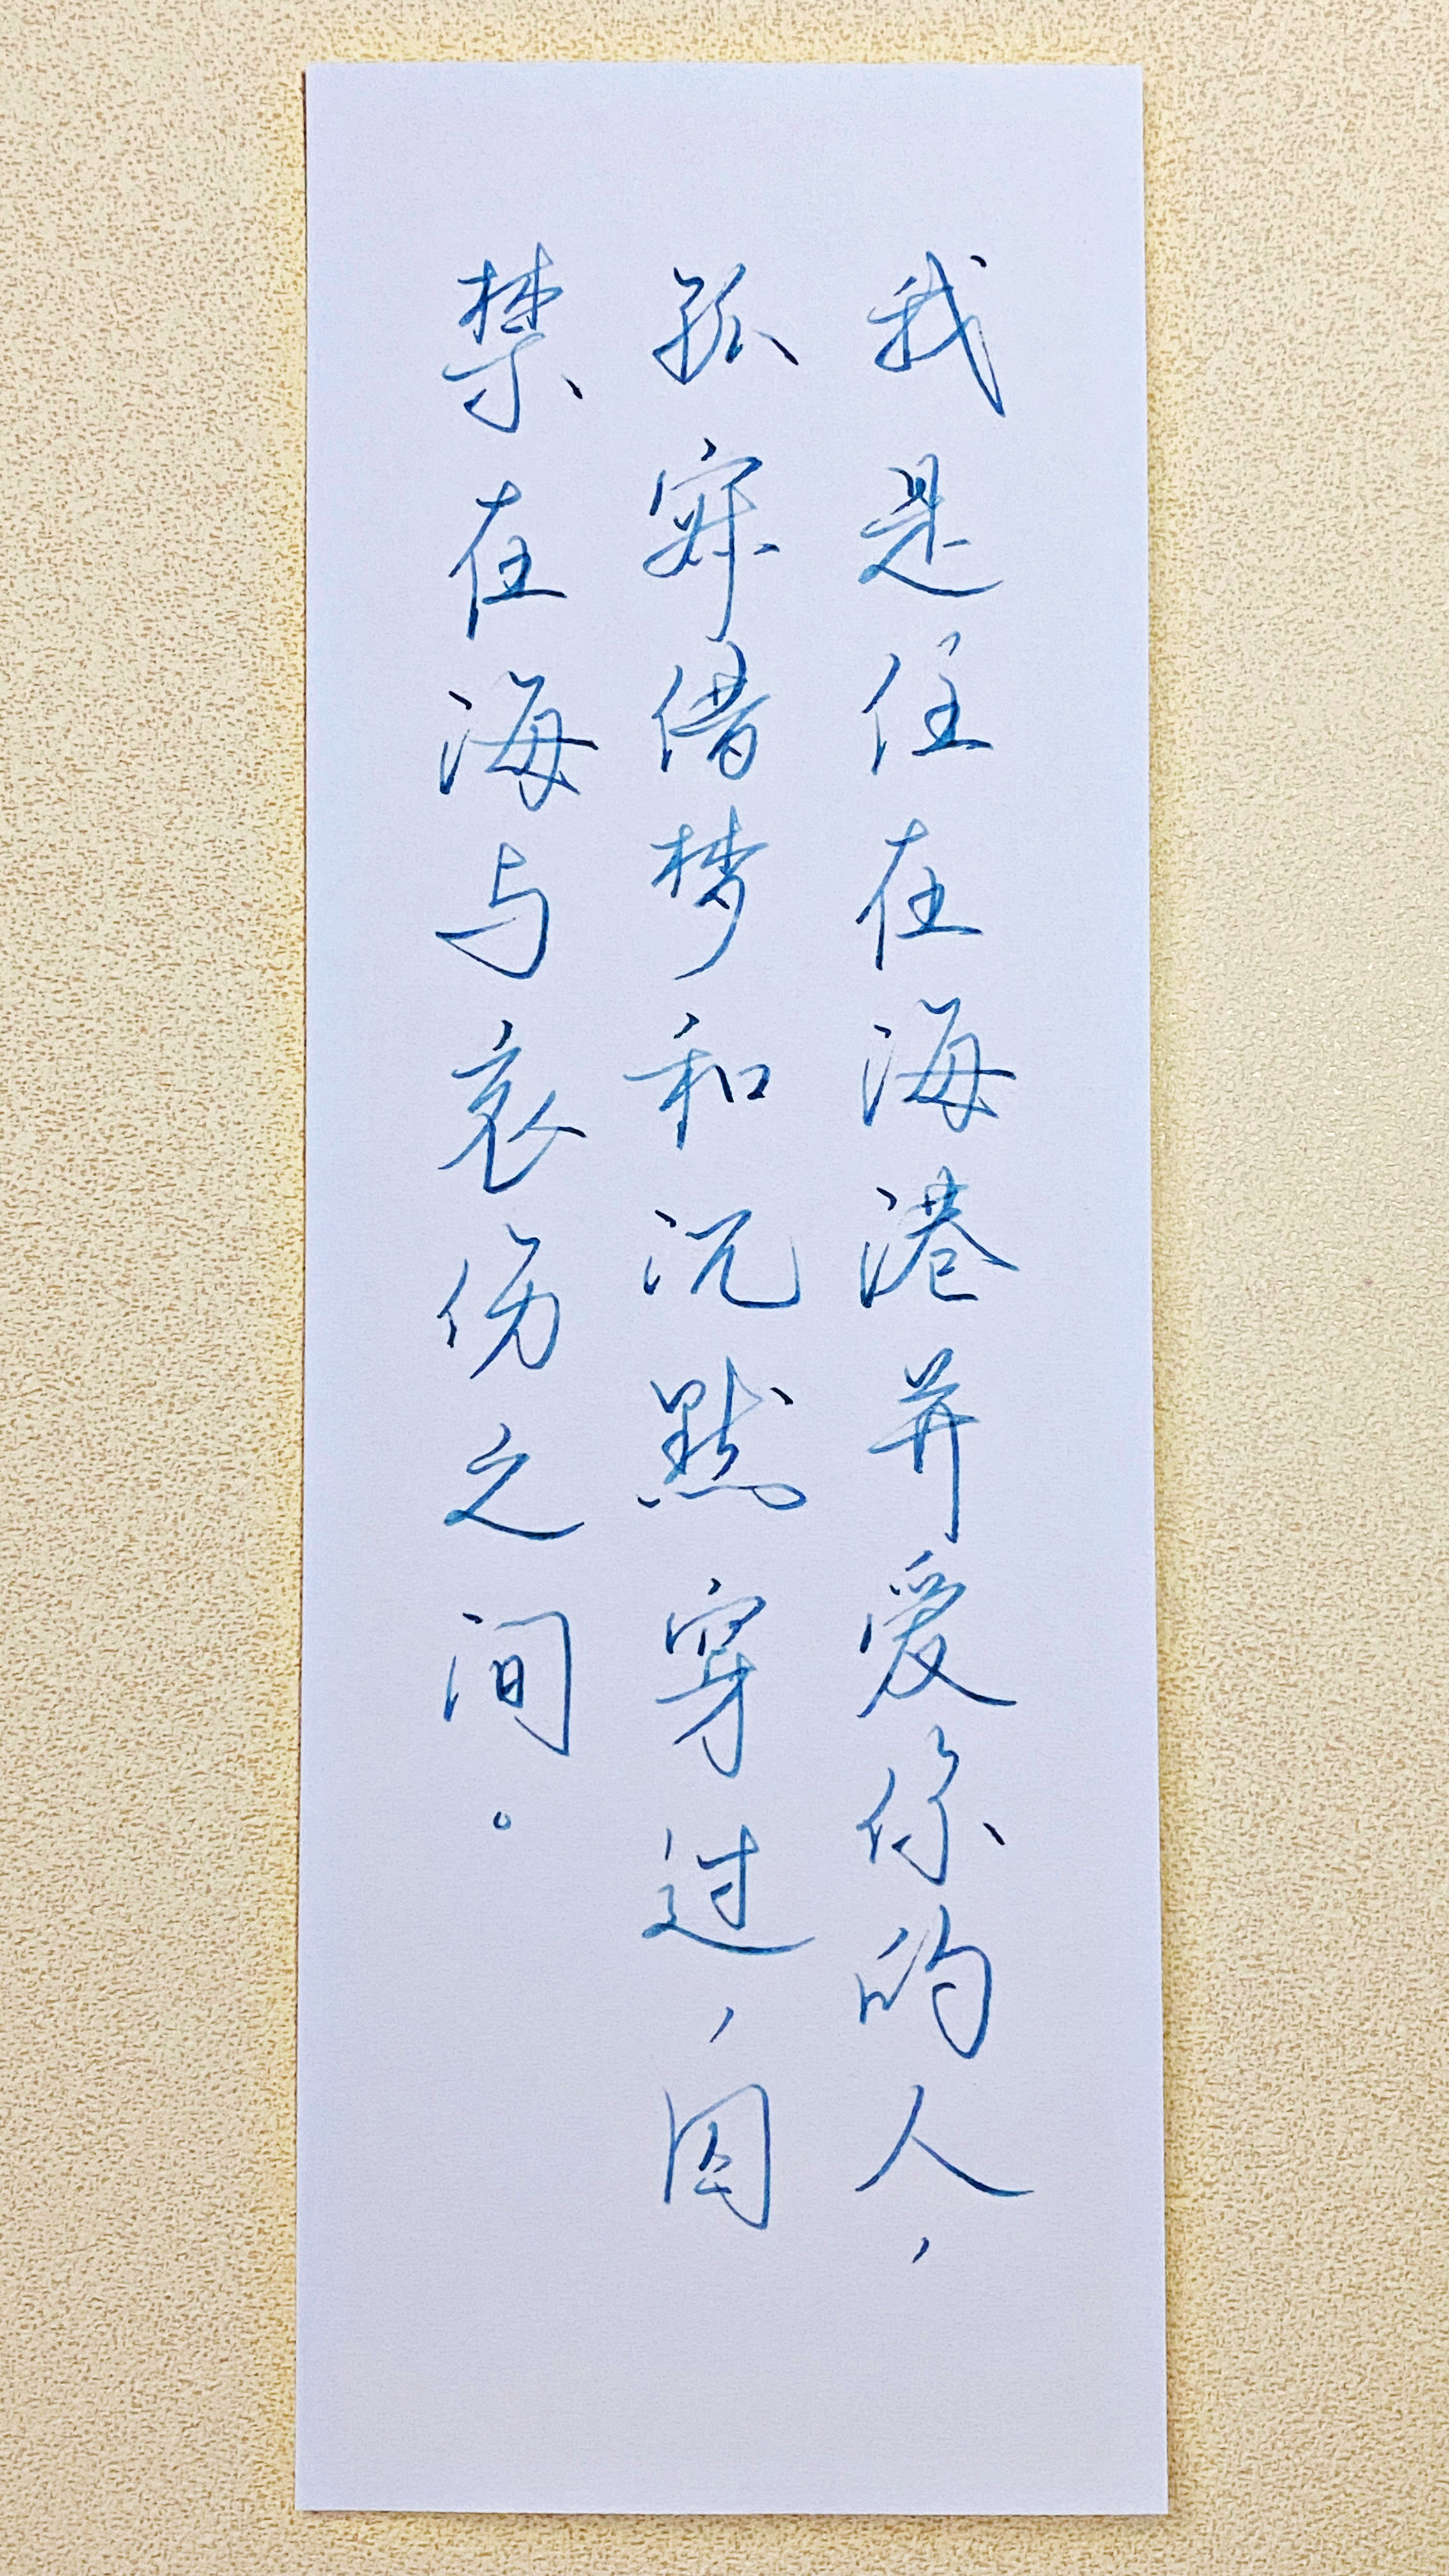 我是住在海港并爱你的人，
孤寂借梦和沉默穿过，囚
禁在海与哀伤之间。